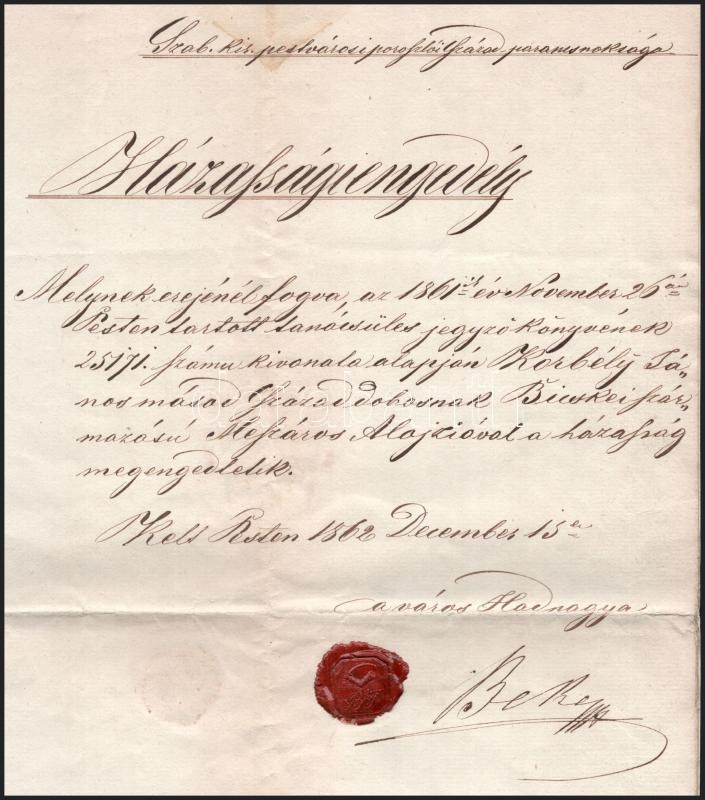 Szab. kir. pestvárosi poroszlói Század parancsnoksága
Házassági engedély
Melynek erejénél fogva, az 1861ik év November 26án
Pesten tartott tanácsüles jegyzőkönyvének
25171. számu kivonata alapján Korbély Já-
nos másod Század dobosnak Bicskei szár-
mazású Mészáros Alojzióval a házasság
megengedtetik.
Kelt Pesten 1862 December 15én
a város Hadnagya
Beke